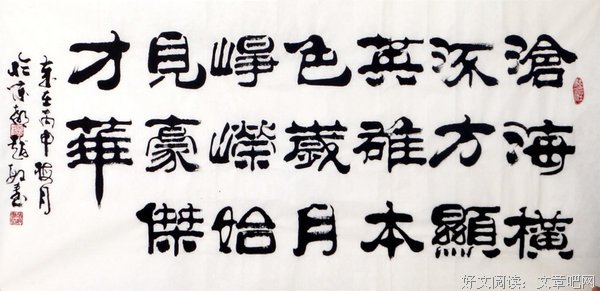 滄海橫
流方顯
英雄本
色歲月
崢嶸始
見豪傑
才華
歲在丙申梅月
於京都趙書
好文阅读： 文章吧网